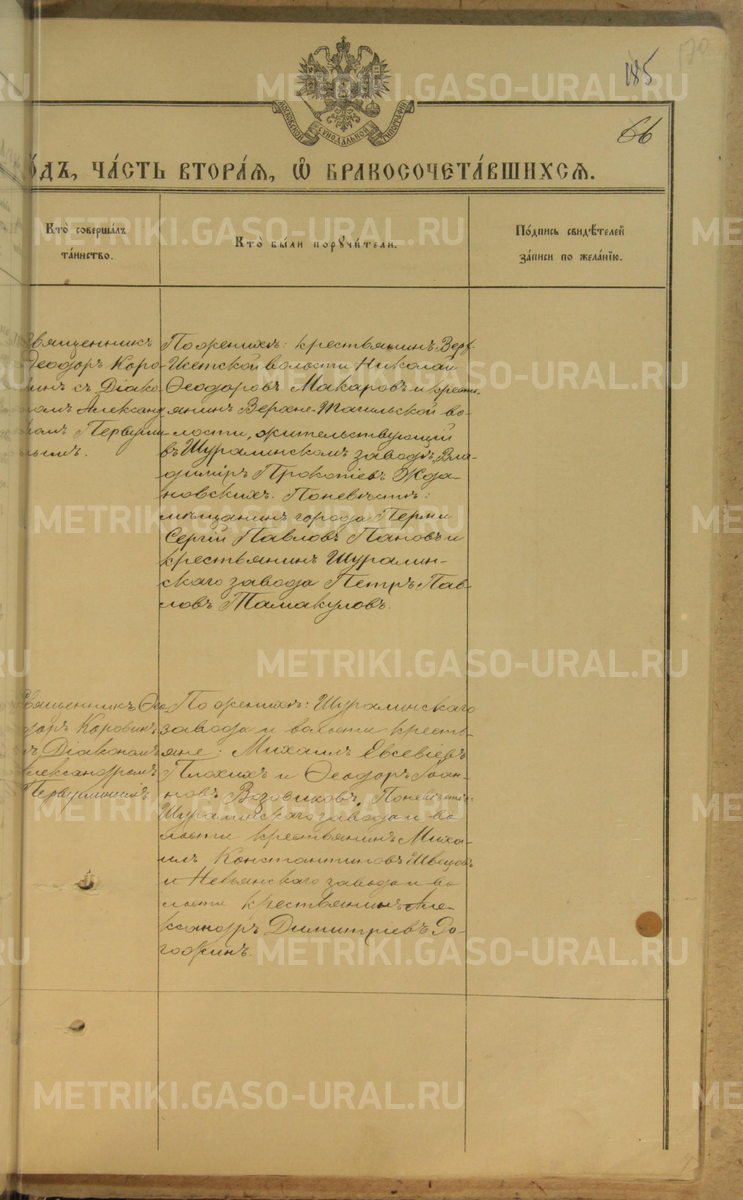 185
170
66
МОСКОВСКОЙ СѴНОДАЛЬНОЙ ТИПОГРАФІИ
О́ДЪ, ЧА́СТЬ ВТОРА́Ѧ, Ѽ БРАКОСОЧЕТА́ВШИХСѦ.
Кто̀ соверша́лъ
та́инство.
Кто̀ бы́ли порꙋчи́тели.
По́дпись свидѣ́телей
за́писи по жела́нїю.
Священникъ
Ѳеодоръ Коро-
винъ съ Діако-
номъ Александ-
ромъ Первуши-
нымъ.
По женихѣ: крестьянинъ Верх-
Исетской волости Николай
Ѳеодоровъ Макаровъ и кресть-
янинъ Верхне-Тагильской во-
лости, жительствующій
въ Шуралинскомъ заводѣ, Вла-
димiръ Прокопіевъ Жда-
новскихъ. По невѣстѣ:
мѣщанинъ города Перми
Сергій Павловъ Пановъ и
крестьянинъ Шуралин-
скаго завода Петръ Пав-
ловъ Тамакуловъ.
Священникъ Ѳео-
доръ Коровинъ
съ Діакономъ
Александромъ
Первушинымъ
По женихѣ: Шуралинскаго
завода и волости кресть-
яне: Михаилъ Евсевіевъ
Плохихъ и Ѳеодоръ Іоан-
новъ Возовиковъ. По невѣстѣ:
Шуралинскаго завода и во-
лости крестьянинъ Миха-
илъ Константиновъ Швецовъ
и Невьянскаго завода и во-
лости крестьянинъ Але-
ксандръ Димитріевъ Ро-
гожинъ.
METRIKI.GASO-URAL.RU